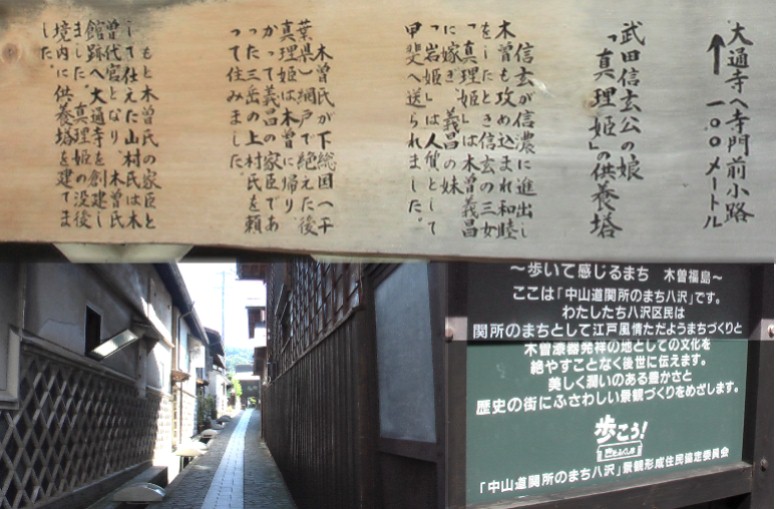 大通寺へ寺門前小路
↑一〇.〇メートル
武田信玄公の娘
「真理姫」の供養塔
信玄が信濃に進出し
木曽も攻め込まれ和睦
をしたとき信玄の三女
「真理姫」は木曽義昌
に嫁ぎ、義昌の妹
「岩姫」は人質として
甲斐へ送られました。
木曽氏が下総国へ千
葉県)網戸で絶えた後
真理姫は木曽に帰り、
かつて義昌の家臣であ
った三岳の上村氏を頼
って住みました。
もと木曽氏の家臣と
して仕えた山村氏は木
曽代官となり、木曽氏
館跡へ大通寺を創建し
ました。真理姫の没後
境内に供養塔を建てま
した。
～歩いて感じるまち 木曽福島～
ここは「中山道関所のまち八沢」です。
わたしたち八沢区民は
関所のまちとして江戸風情ただようまちづくりと
木曽漆器発祥の地としての文化を
絶やすことなく後世に伝えます。
美しく潤いのある豊かさと
歴史の街にふさわしい景観づくりをめざします。
歩こう!
「中山道関所のまち八沢」景観形成住民協定委員会